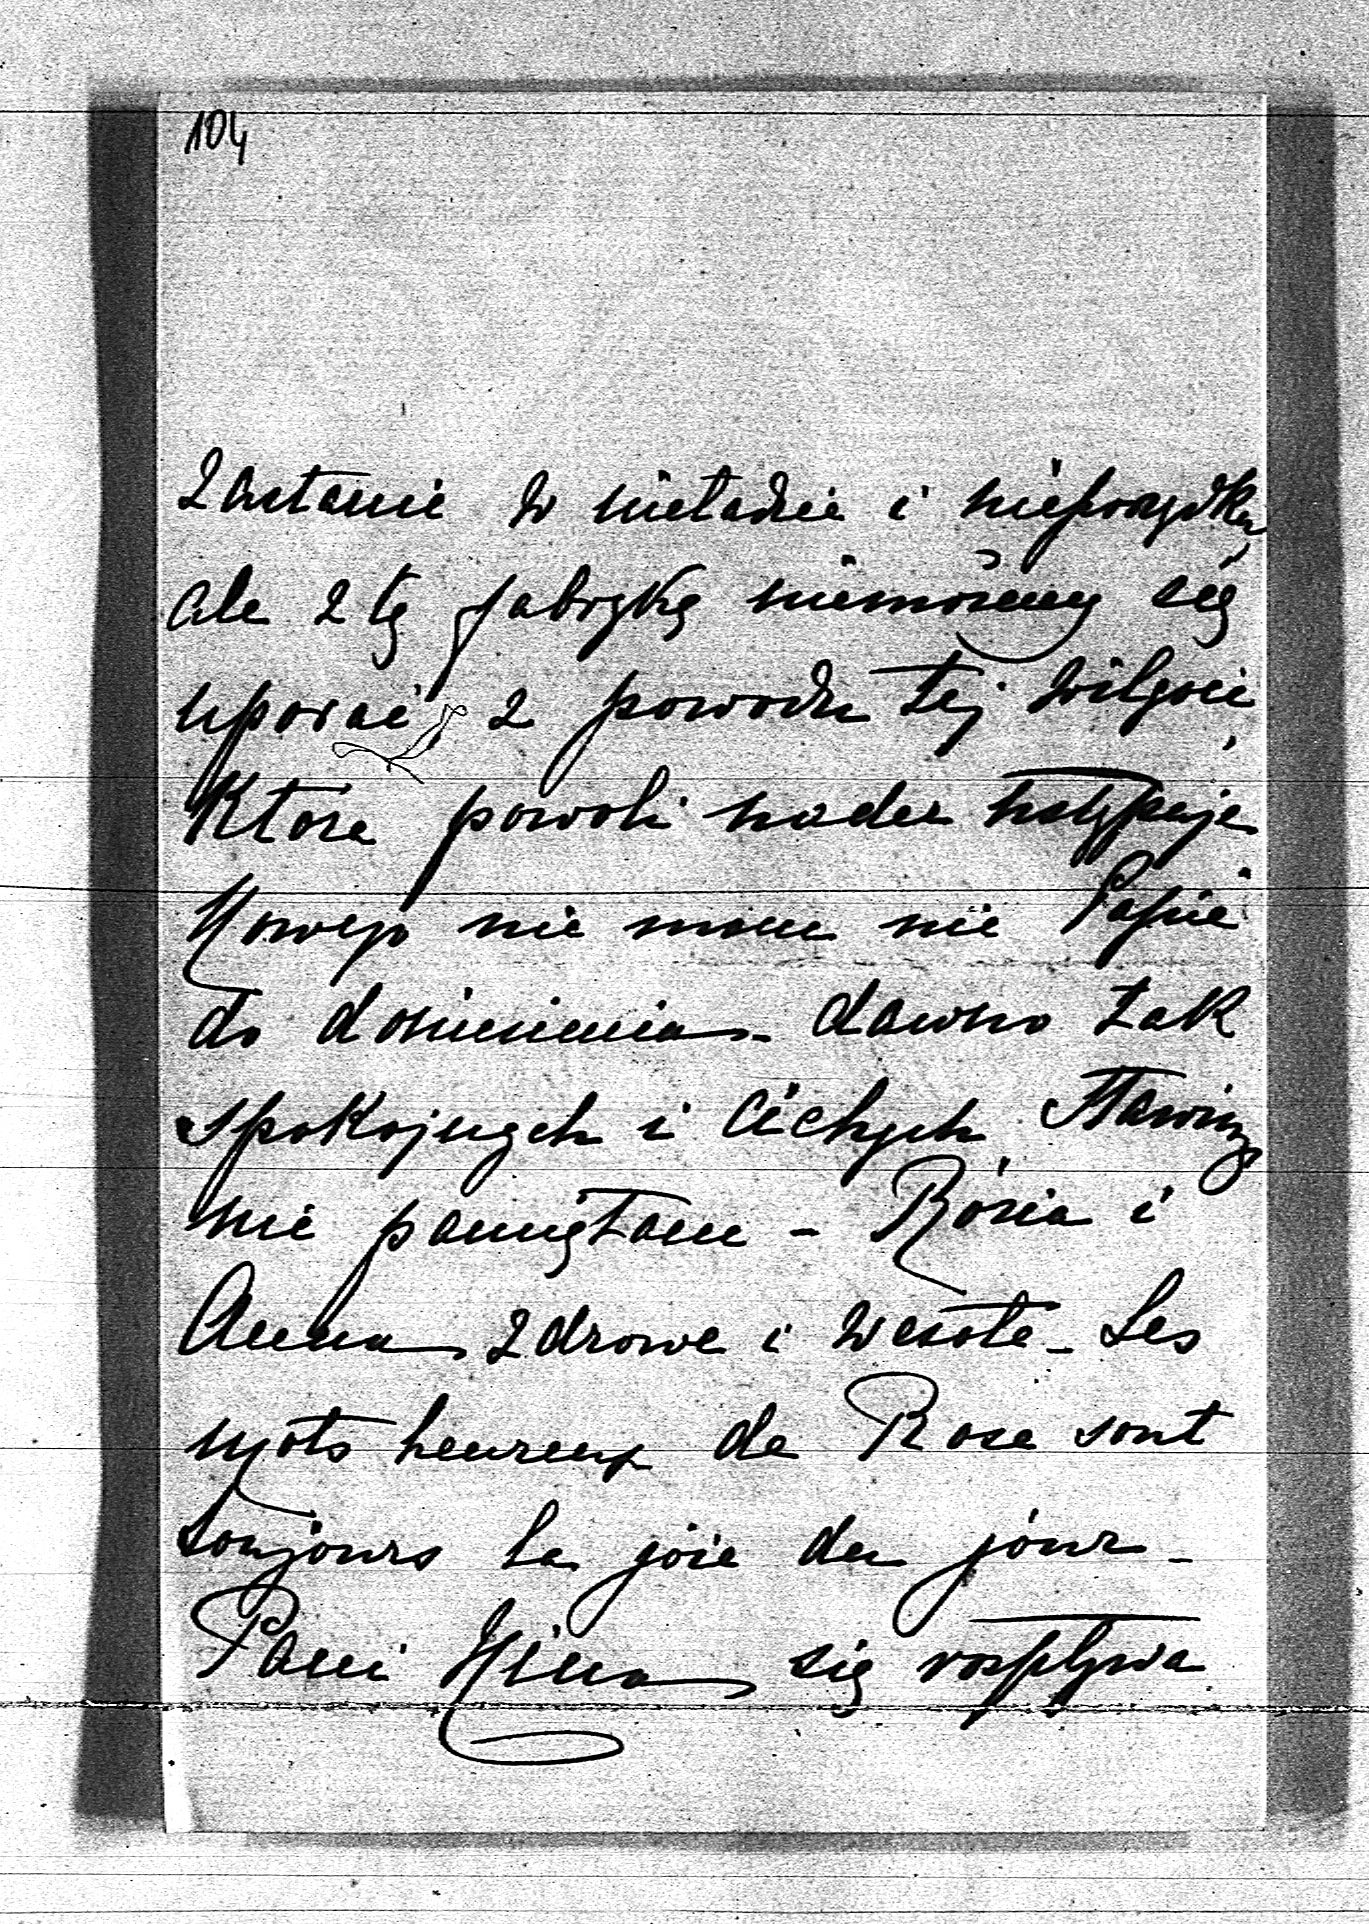 104
zastanie w nieładzie i nieporządku,
ale z tą fabryką niemożemy się
uporać z powodu tej wilgoci,
Która powoli nader ustępuje
Nowego nie mam nic Papie
do doniesienia – dawno tak
spokojnych i cichych Stawisz
nie pamiętam – Rózia i
Anna zdrowe i wesołe – Les
mots heureux de Rose sont
toujours la joie du jour –
Pani Nina się rozpływa